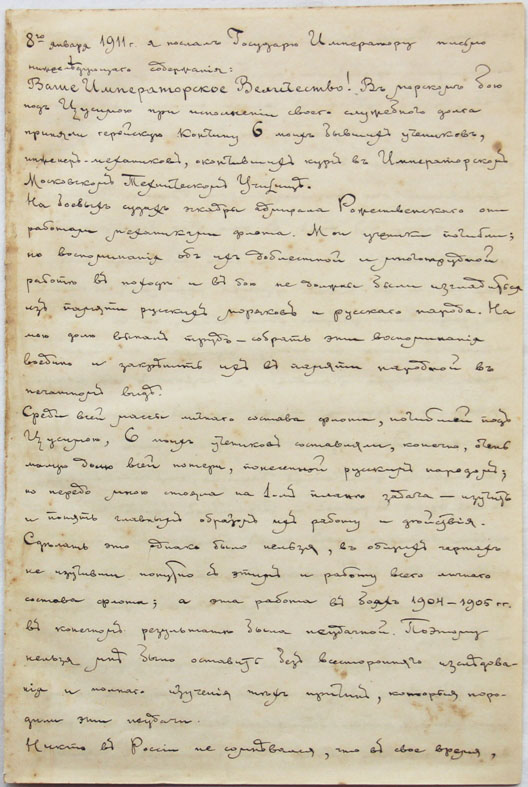 8го января 1911 г. я послалъ Государю Императору письмо
нижеслѣдующаго содержанія:
Ваше Императорское Величество! Въ морскомъ бою
подъ Цусимою при исполненіи своего служебнаго долга
приняли геройскую кончину 6 моихъ бывшихъ учениковъ,
инженеръ-механиковъ, окончившихъ курсъ въ Императорскомъ
Московскомъ Техническомъ Училищѣ.
На боевыхъ судахъ эскадры адмирала Рожественскаго они
работали механиками флота. Мои ученики погибли;
но воспоминанія объ ихъ доблестной и многотрудной
работѣ въ походѣ и въ бою не должны были изгладиться
изъ памяти русскихъ моряковъ и русскаго народа. На
мою долю выпалъ трудъ – собрать эти воспоминанія
воедино и закрѣпить ихъ въ памяти народной въ
печатномъ видѣ.
Среди всей массы личнаго состава флота, погибшей подъ
Цусимою, 6 моихъ учениковъ составляли, конечно, очень
малую долю всей потери, понесенной русскимъ народомъ;
но передо мною стояла на 1-мъ планѣ задача – изучить
и понять главнымъ образомъ ихъ работу и дѣйствія.
Сдѣлать это однако было нельзя, въ общихъ чертахъ
не изучивши попутно съ этимъ и работу всего личнаго
состава флота; а эта работа въ бояхъ 1904–1905 гг.
въ конечномъ результатѣ была неудачной. Поэтому
нельзя мнѣ было оставить безъ всесторонняго изслѣдова-
нія и полнаго изученія тѣхъ причинъ, которыя поро-
дили эти неудачи.
Никто въ Россіи не сомнѣвался, что въ свое время,